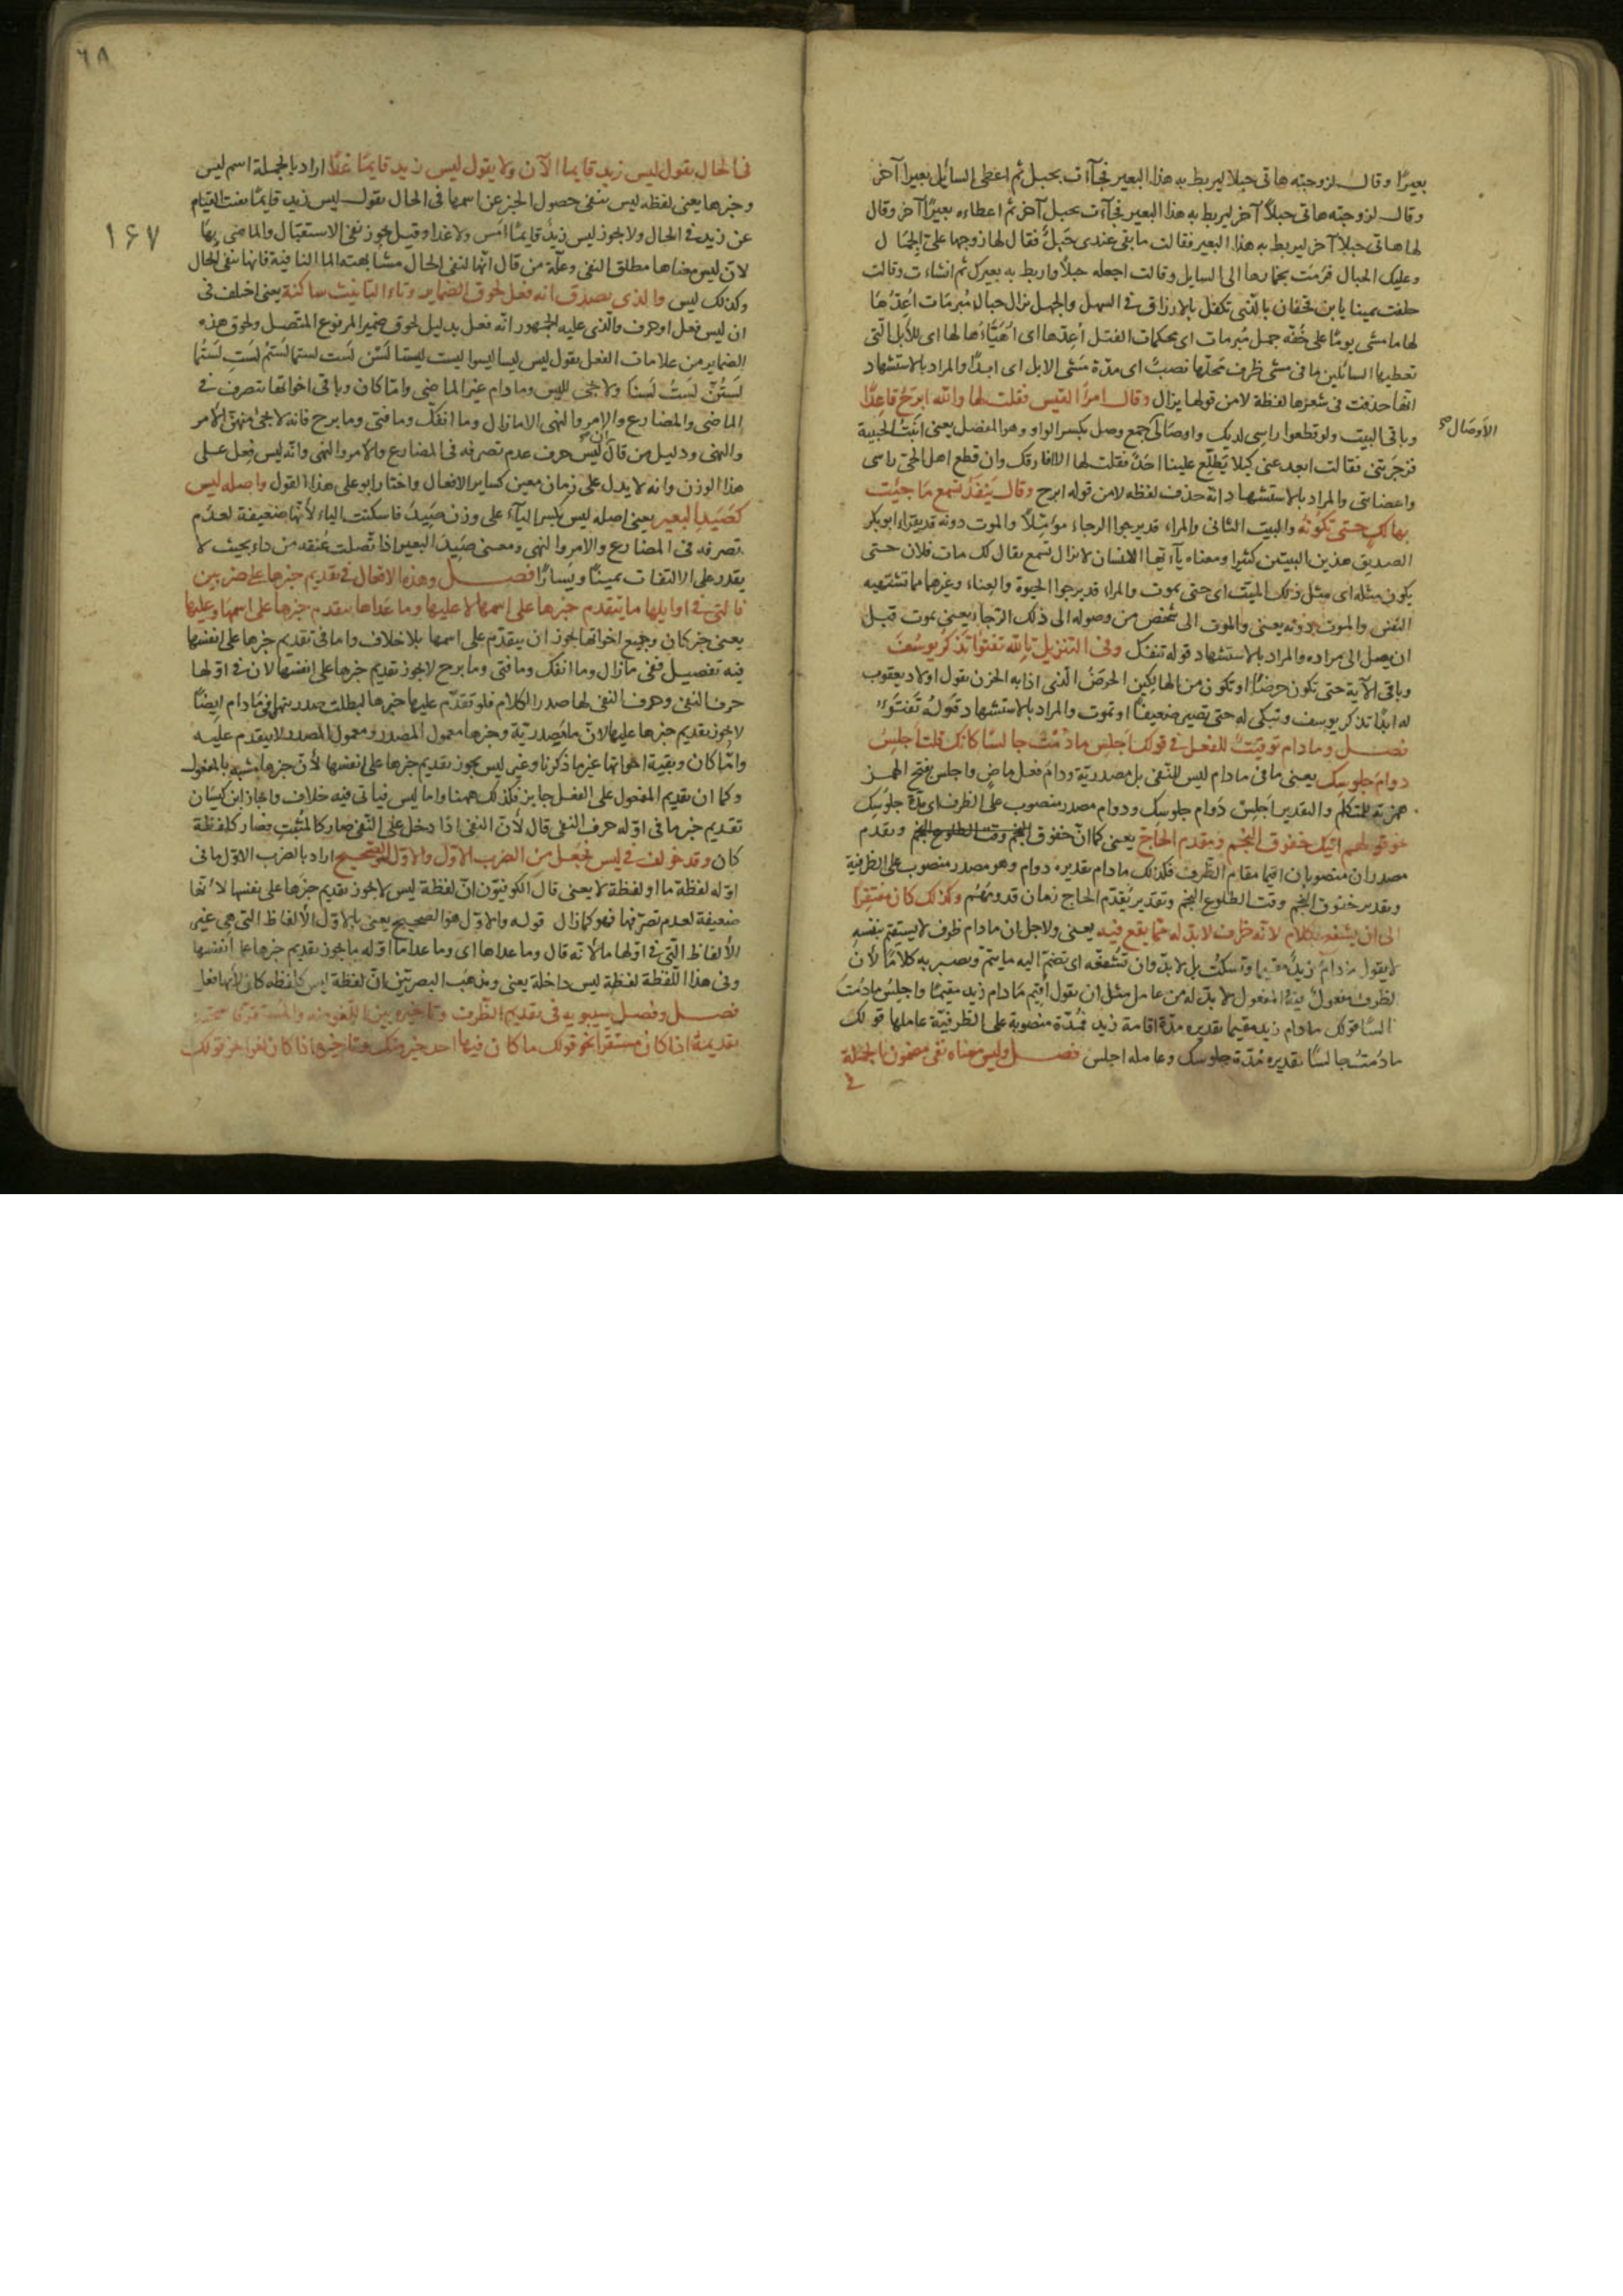 بعيرًا وقال لزوجته هاتى حبلا ليربط به هذا البعير فجآءت بحبل ثم اعطى السائل بعيرا آخر
وقال لزوجته هاتى حبلاً آخر ليربط به هذا البعير فجآءت بحبل آخر ثم اعطاه بعيرًا آخر وقال
لها هاتى حبلاً آخر ليربط به هذا البعير فقالت ما بقى عندى حَبلٌ فقال لها زوجها علىّ الجمال
وعليك الحبال فرمت بخمارها الى السايل وقالت اجعله حبلاً واربط به بعيرك ثم انشاءت وقالت
حلفت يمينا يا بن قحفان بالذى تكفل بالارزاق فى السهل والجبل تزال حبال مُبرمَات اُعِدّهَا
لها ما مشى يومًا على خُفّه جمل مُبرمات اى محكمات الفتل اُعِدّها اى اُهَيّاءُها لها اى للأبل التى
تعطيها السائلين ما فى مشى ظرف محلّها نصبٌ اى مدّة مَشى الابل اى ابدًا والمراد بالاستشهاد
انها حذفت فى شعرها لفظة لا من قولها يزال وقال امرأ القيس فقلت لها والله ابرَحُ قاعِدًا
الأوصَال صح
وباقى البيت ولو قطعوا راسى لديك واوصَالى جمع وصل بكسر الواو وهو المفصل يعنى اتيت الحبيبة
فزجرتنى فقالت ابعد عنى كيلا يَطّلِع علينا احَدٌ فقلت لها لا افارقك وان قطع اهل الحىّ راسى
واعضائى والمراد بالاستشهاد انّه حذف لفظه لا من قوله ابرح وقال يَنفَكُّ تسمع مَا حييت
بهالك حتى تكُونَهُ والبيت الثانى والمراء قد يرجوا الرجاء مؤمّلاً والموت دونه قد يقراء ابوبكر
الصديق هذين البيتين كثيرا ومعناه يآ ايّها الانسان لا تزال تسمع يقال لك مات فلان حتى
يكون مثله اى مثل ذلك الميّت اى حتى يموت والمراء قد يرجوا الحيوة والغناء وغيرهما مما تشتهيه
النفس والموت دونه يعنى والموت الى شخص من وصوله الى ذلك الرّجا يعنى يموت قبل
ان يصل الى مراده والمراد بالاستشهاد قوله تنفك وفى التنزيل تالله تفتؤا تذكر يوسُفَ
وباقى الآية حتى تكون حرضًا او تكون من الهالكين الحرضُ الّذى اذابه الحزن يقول اولاد يعقوب
له ابدًا تذكر يوسف وتبكى له حتى تصير ضعيفًا او تموت والمراد بالاستشهاد قولهُ تَفتَؤُ
فصل وما دام توقيتٌ للفعل فى قولك اجلس ما دُمتُ جالسًا كانك قلت اجلِس
دوامَ جلوسِك يعنى ما فى ما دام ليس للنّفى بل مصدريّة ودامَ فعل ماض واجلس بفتح الهمز
همزته للمتكلّم والتقدير اجلِسُ دَوام جلوسِك ودوام مصدر منصوب على الظرف اى مدّة جلوسِك
نحو قولهم اتيك خفوق النّجم ومقدم الحَاجّ يعنى كما انّ خفوق النجم وقت الطلوع النجم ومقدم
مصدران منصوبان اقيما مقام الظّرف فكذلك ما دام تقديره دوام وهو مصدر منصوب على الظرفية
وتقدير خفوق النجم وقت الطلوع النجم وتقدير مُقدّم الحاج زمان قدومهُم وكذلك كان مفتقِرًا
الى ان يشفع بكلام لانه ظرف لابدّ له ممّا يقع فيه يعنى ولاجل ان ما دام ظرف لا يستقيم بنفسِهِ
لا يقول ما دام زيدٌ مقيما وتسكتُ بل لابدّ وان تشفعَه اى تضمّ اليه ما يتمّ ويصير به كلامًا لأنّ
الظرف مفعول فيه والمفعول لابدّ له من عامل مثل ان يقول اقيم مَا دام زيد مقيمًا واجلِسُ ما دُمتَ
السّا قولك ما دام زيد مقيما تقديره مدّة اقامة زيد فمُدّة منصوبة على الظرفيّة عاملها قولك
ما دُمتُ جالسًا تقديره مُدّة جلوسك وعامله اجلس فصل وليس معناه نفى مضمون الجملة
فى
٦٨
١۶٧
فى الحال يقول ليس زيد قايما الآن ولا يقول ليس زيد قايمًا غدًا اراد بالجملة اسم ليس
وخبرها يعنى لفظه ليس ينفى حصول الخبر عن اسمها فى الحال يقول ليس زيد قايمًا نفت القيام
عن زيد فى الحال ولا يجوز ليس زيدٌ قايمًا امس ولا غدا وقيل يجوز نفى الاستقبال والماضى بها
لانّ ليس معناها مطلق النفى وعلّة من قال انّها لنفى الحال مشابهته الما النافية فانها تنفى الحال
وكذلك ليس والذى يصدق انه فعل لحوق الضماير وتاء التانيث ساكنة يعنى اختلف فى
ان ليس فعل او حرف والّذى عليه الجمهور انّه فعل بدليل لحوق ضمير المرفوع المتّصل ولحوق هذه
الضماير من علامات الفعل يقول ليس ليسا ليسوا ليست ليستا لَسن لَست لستما لَستُم لَستِ لَستُما
لَستُنّ لَستُ لَسنَا ولا يجى لليس وما دام غير الماضى وامّا كان وباقى اخواتها يتصرف فى
الماضى والمضارع والامر والنهى الا ما زال وما انفكّ وما فتى وما برح فانه لا يجئ منهنّ الأمر
والنهى ودليل من قال انّ لَيسَ حرف عدم تصرفه فى المضارع والأمر والنهى وانّه ليس فِعل على
هذا الوزن وانه لا يدلّ على زمان معين كساير الافعال واختار ابو على هذا القول واصله ليس
كصَيِدِ البعير يعنى اصله ليس بكسر اليآء على وزن صَيِدَ فاسكنت الياء لأنّها ضعيفة لعدم
تصرفه فى المضارع والامر والنهى ومعنى صَيِدَ البعير اذا تصلّت عُنقه من داء بحيث لا
يقدر على الالتفات يمينًا ويَسارًا فصل وهذه الافعال فى تقديم خبرها على ضربين
فالتى فى اوايلها ما يتقدم خبرها على اسمها لا عليها وما عداها يتقدم خبرها على اسمهَا وعليها
يعنى خبر كان وجميع اخواتها يجوز ان يتقدّم على اسمها بلا خلاف واما فى تقديم خبرها على انفسها
فيه تفصيل ففى ما زال وما انفك وما فتى وما برح لا يجوز تقديم خبرها على انفسها لانّ فى اوّلها
حرف النفى وحرف النفى لها صدر الكلام فلو تقدّم عليها خبرها لبطلت صدريتها وفى ما دام ايضًا
لا يجوز تقديم خبرها عليها لانّ ما مَصدريّة وخبرها معمول المصدر ومعمول المصدر لا يتقدم عليه
وامّا كان وبقيّة اخواتها غير ما ذكرنا وغير ليس يجوز تقديم خبرها على انفسها لأنّ خبرها مشبه بالمفعول
وكما ان تقديم المفعول على الفعل جايز فكذلك ههنا واما ليس فياتى فيه خلاف واجاز ابن كيسان
تقديم خبر ما فى اوّله حرف النفى قال لأنّ النفى اذا دخل على النّفى صار كالمثبتِ فصار كلفظة
كان وقد خولف فى ليس فجُعل من الضرب الأوّل والاوّل هو الصّحيح اراد بالضرب الاوّل ما فى
اوّله لفظة ما او لفظة لا يعنى قال الكوفيّون انّ لفظة ليس لا يجوز تقديم خبرها على نفسها لأنّها
ضعيفة لعدم تصرّفها فهو كما زال قوله والاوّل هو الصحيح يعنى بالاوّل الألفاظ التى هى غير
الألفاظ الّتى فى اوّلها ما لأنّه قال وما عداها اى وما عدا ما اوّله ما يجوز تقديم خبرها على انفسها
وفى هذا اللّفظة لفظة ليس داخلة يعنى ومذهب البصريّين انّ لفظة ليس كلفظه كان لأنها فعل
فصل وفصل سيبويه فى تقديم الظّرف وتاخيره بين اللّغو منه والمُستقرّ
تقديمهُ اذا كان مستقرًا نحو قولك ما كان فيها احد خير منك وتاخيره اذا كان لغوا نحو قولك